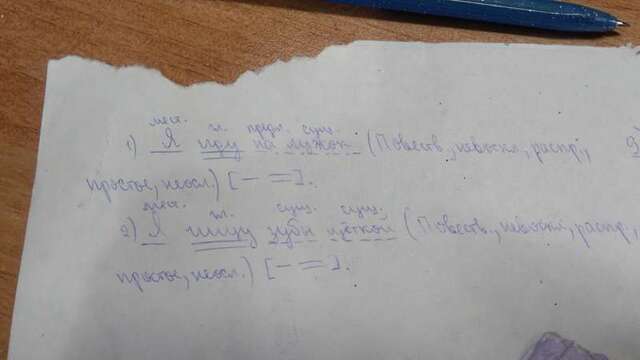 мест. гл. предл. сущ.
1) Я иду на лужок (Повеств., невоскл., распр.,
простое, неосл.) [— =].
мест. гл. сущ. сущ.
2) Я чищу зубы щёткой (Повеств., невоскл., распр.,
простое, неосл.) [— =].